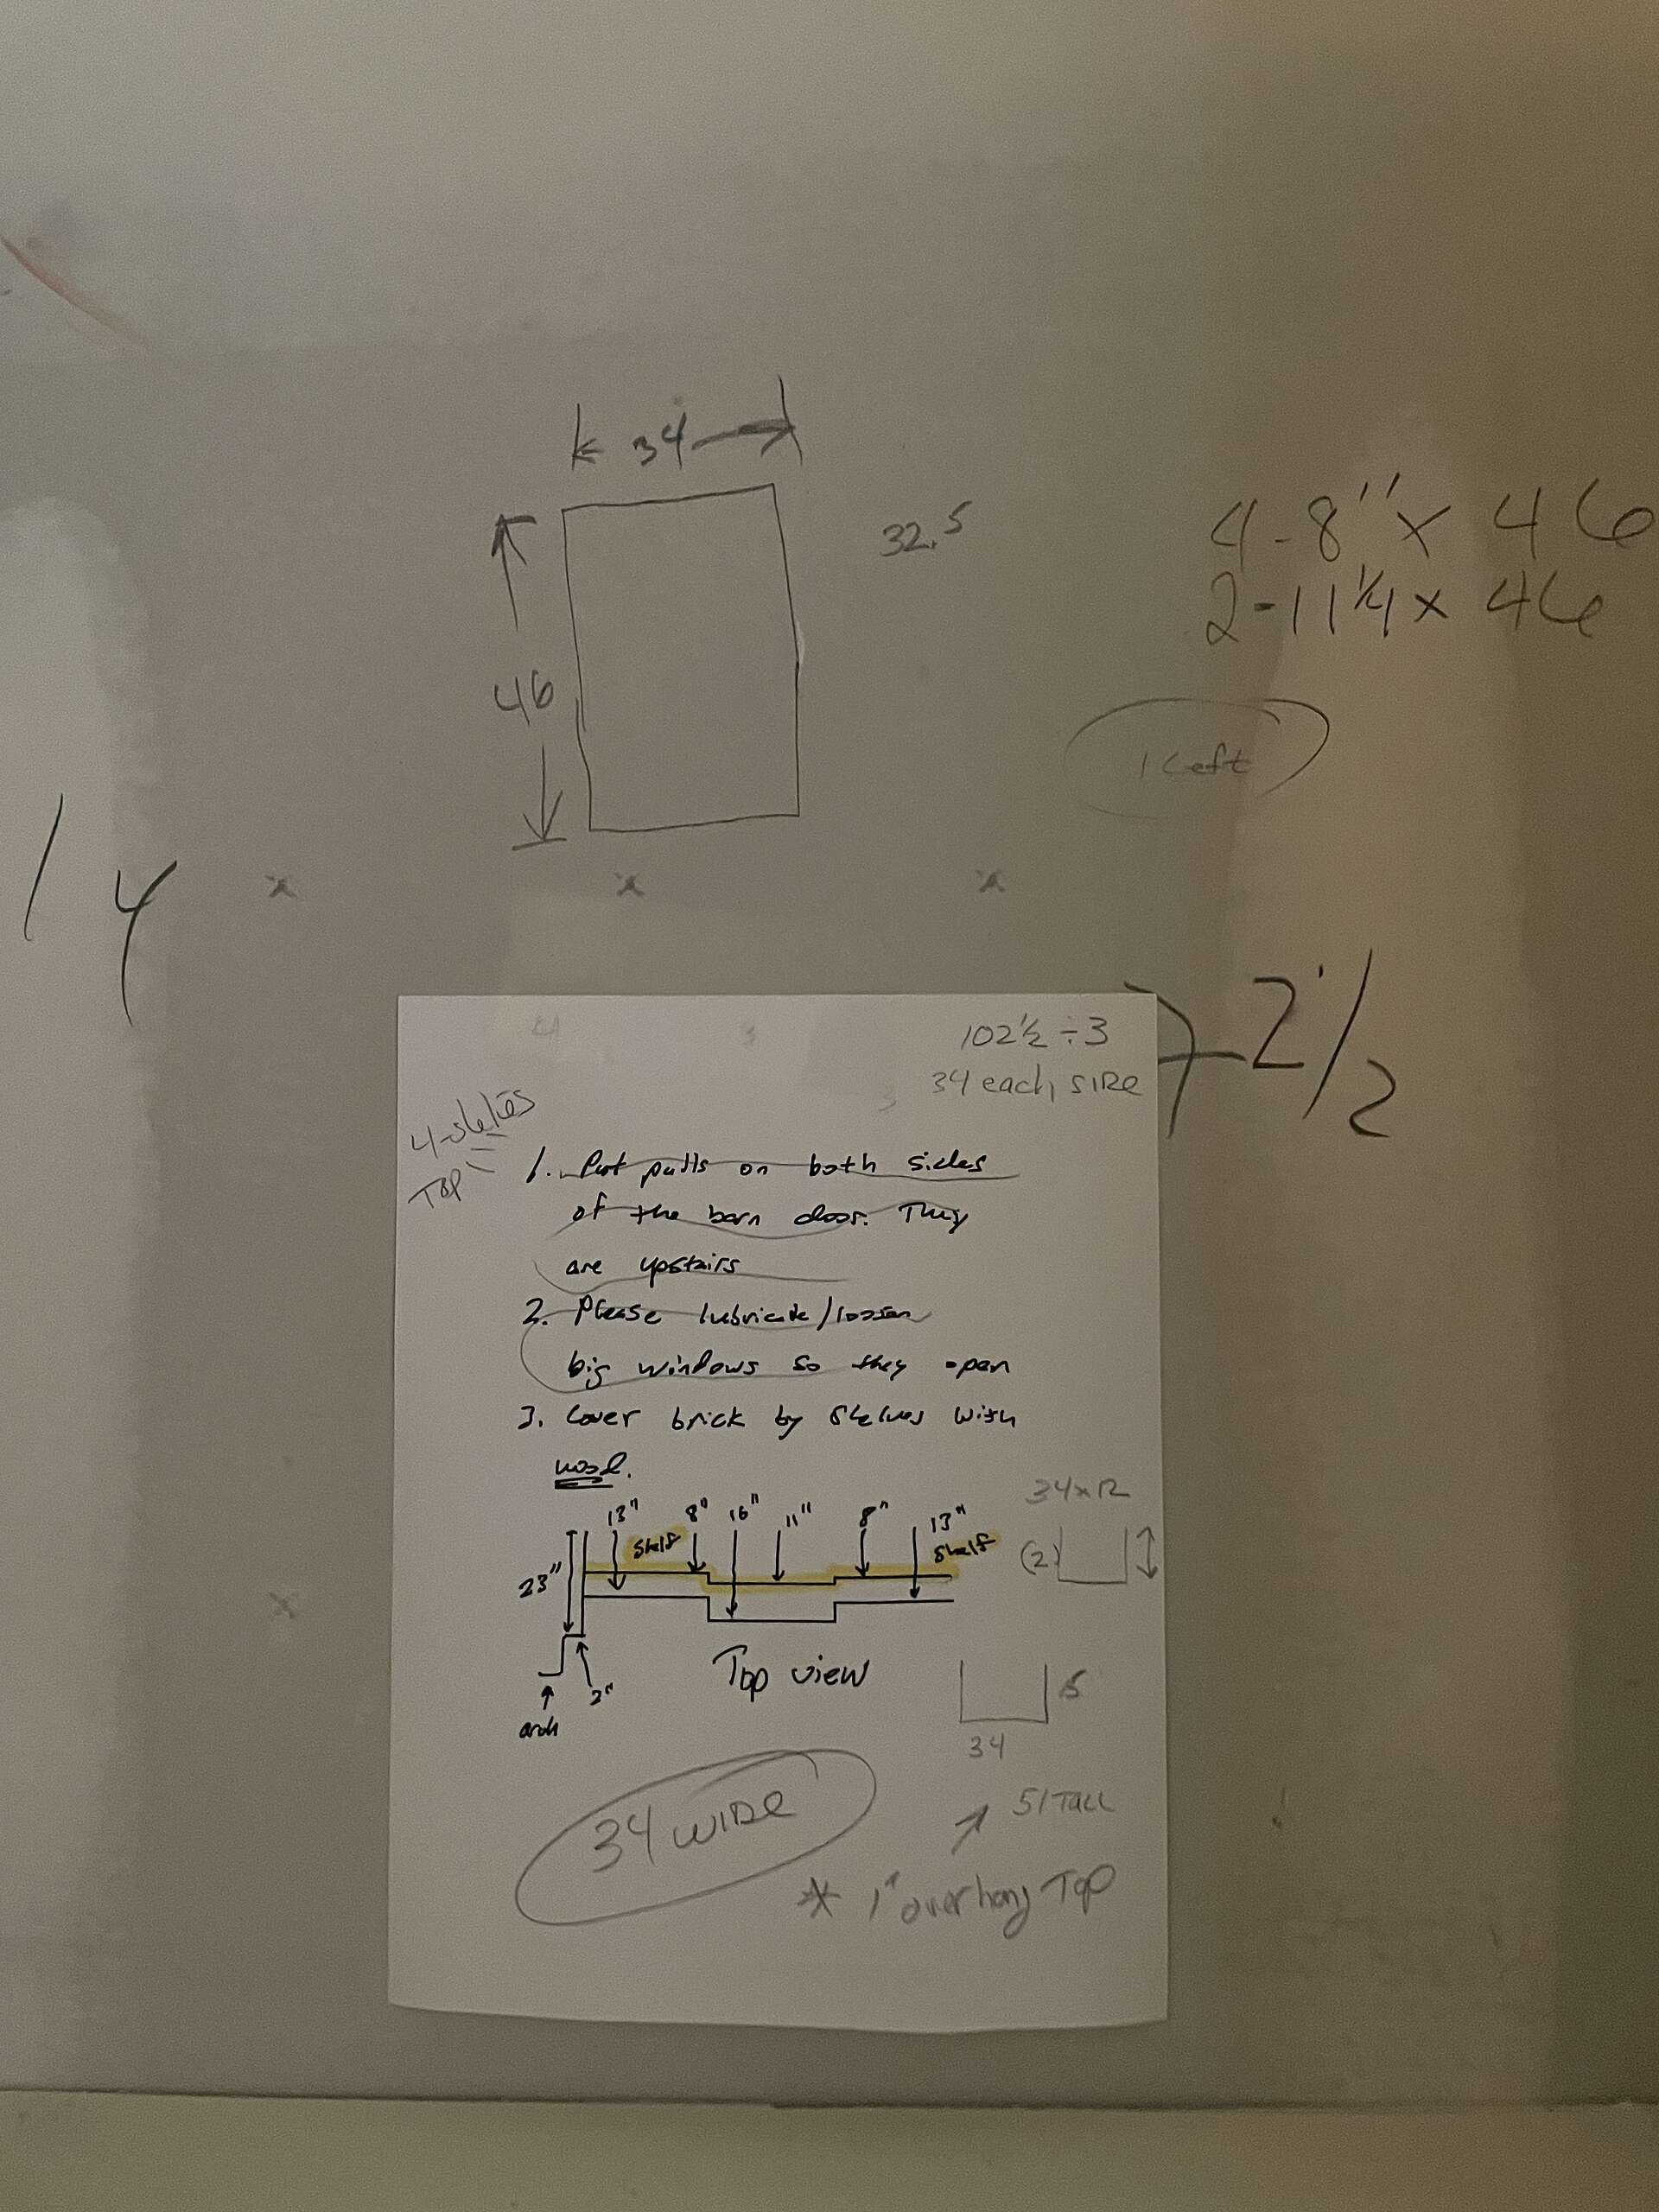 34
32.5
4-8" x 46
2-11 1/4 x 46
46
1 Left
14
2 1/2
102 1/2 ÷ 3
34 each side
4-shelves
Top
1. Put pulls on both sides
of the barn door. They
are upstairs
2. Please lubricate/loosen
big windows so they open
3. Cover brick by shelves with
wood.
34x12
13" 8" 16" 11" 8" 13"
shelf shelf
(2)
23"
Top view
2"
arch
5
34
34 WIDE
51 Tall
* 1" overhang Top